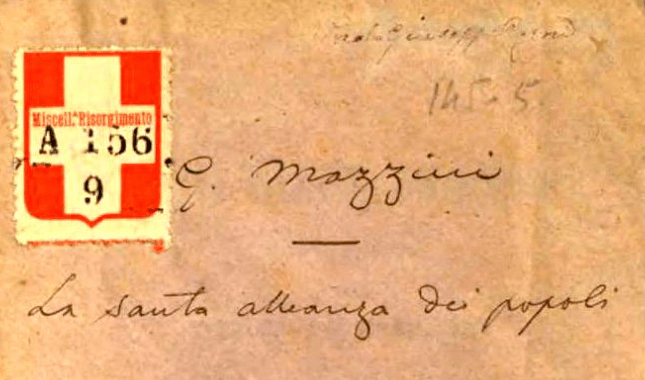 Miscell.ª Risorgimento
A 156
9
G. Mazzini
La santa alleanza dei popoli